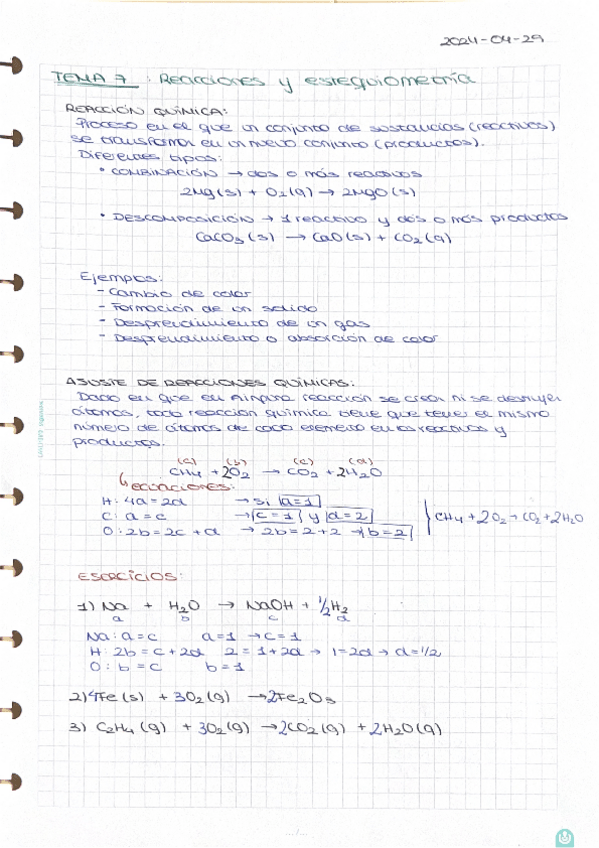 2024-04-29
TEMA 7 : Reacciones y estequiometría
REACCIÓN QUÍMICA:
Proceso en el que un conjunto de sustancias (reactivos)
se transforman en un nuevo conjunto (productos).
Diferentes tipos:
• COMBINACIÓN → dos o más reactivos
2Mg(s) + O₂(g) → 2MgO(s)
• DESCOMPOSICIÓN → 1 reactivo y dos o más productos
CaCO₃(s) → CaO(s) + CO₂(g)
Ejemplos:
- Cambio de color
- Formación de un solido
- Desprendimiento de un gas
- Desprendimiento o absorción de calor
AJUSTE DE REACCIONES QUÍMICAS:
Dado en que en ninguna reacción se crean ni se destruyen
átomos, toda reacción química tiene que tener el mismo
número de átomos de cada elemento en los reactivos y
productos.
(a) (b) (c) (d)
CH₄ + 2O₂ → CO₂ + 2H₂O
↳ ecuaciones:
H: 4a = 2d → si a=1
C: a = c → c=1 y d=2
O: 2b = 2c + d → 2b = 2+2 → b=2
CH₄ + 2O₂ → CO₂ + 2H₂O
EJERCICIOS:
1) Na + H₂O → NaOH + ½H₂
a b c d
Na: a = c a = 1 → c = 1
H: 2b = c + 2d 2 = 1 + 2d → 1 = 2d → d = 1/2
O: b = c b = 1
2) 4Fe(s) + 3O₂(g) → 2Fe₂O₃
3) C₂H₄(g) + 3O₂(g) → 2CO₂(g) + 2H₂O(g)